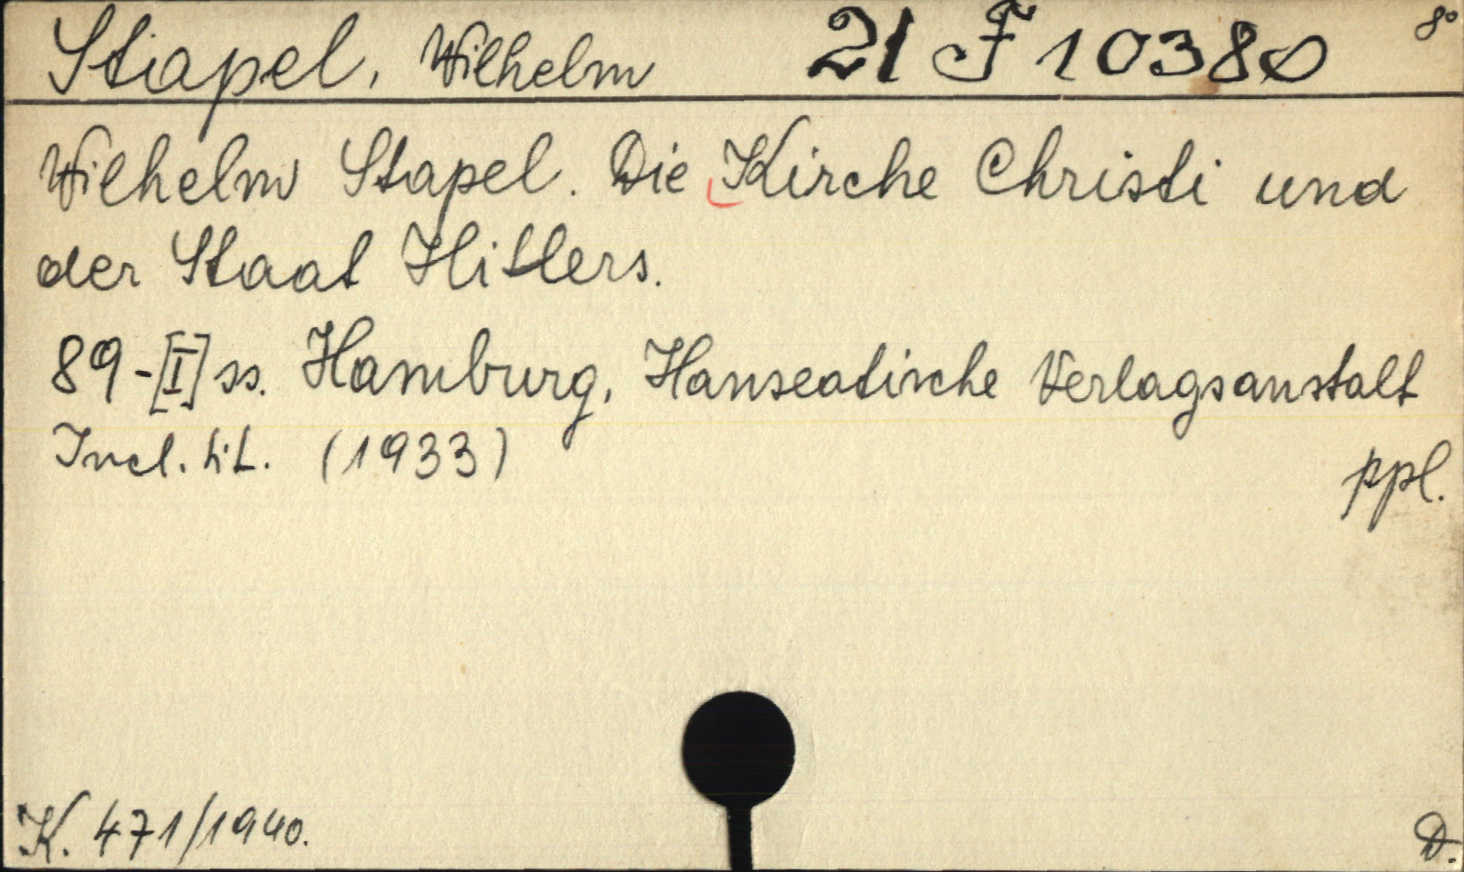 Stapel, Wilhelm 21 F 10380 8°
Wilhelm Stapel. Die Kirche Christi und
der Staat Hitlers.
89-[I] ss. Hamburg, Hanseatische Verlagsanstalt
Incl. tit. (1933)
ppl.
K. 471/1940. D.